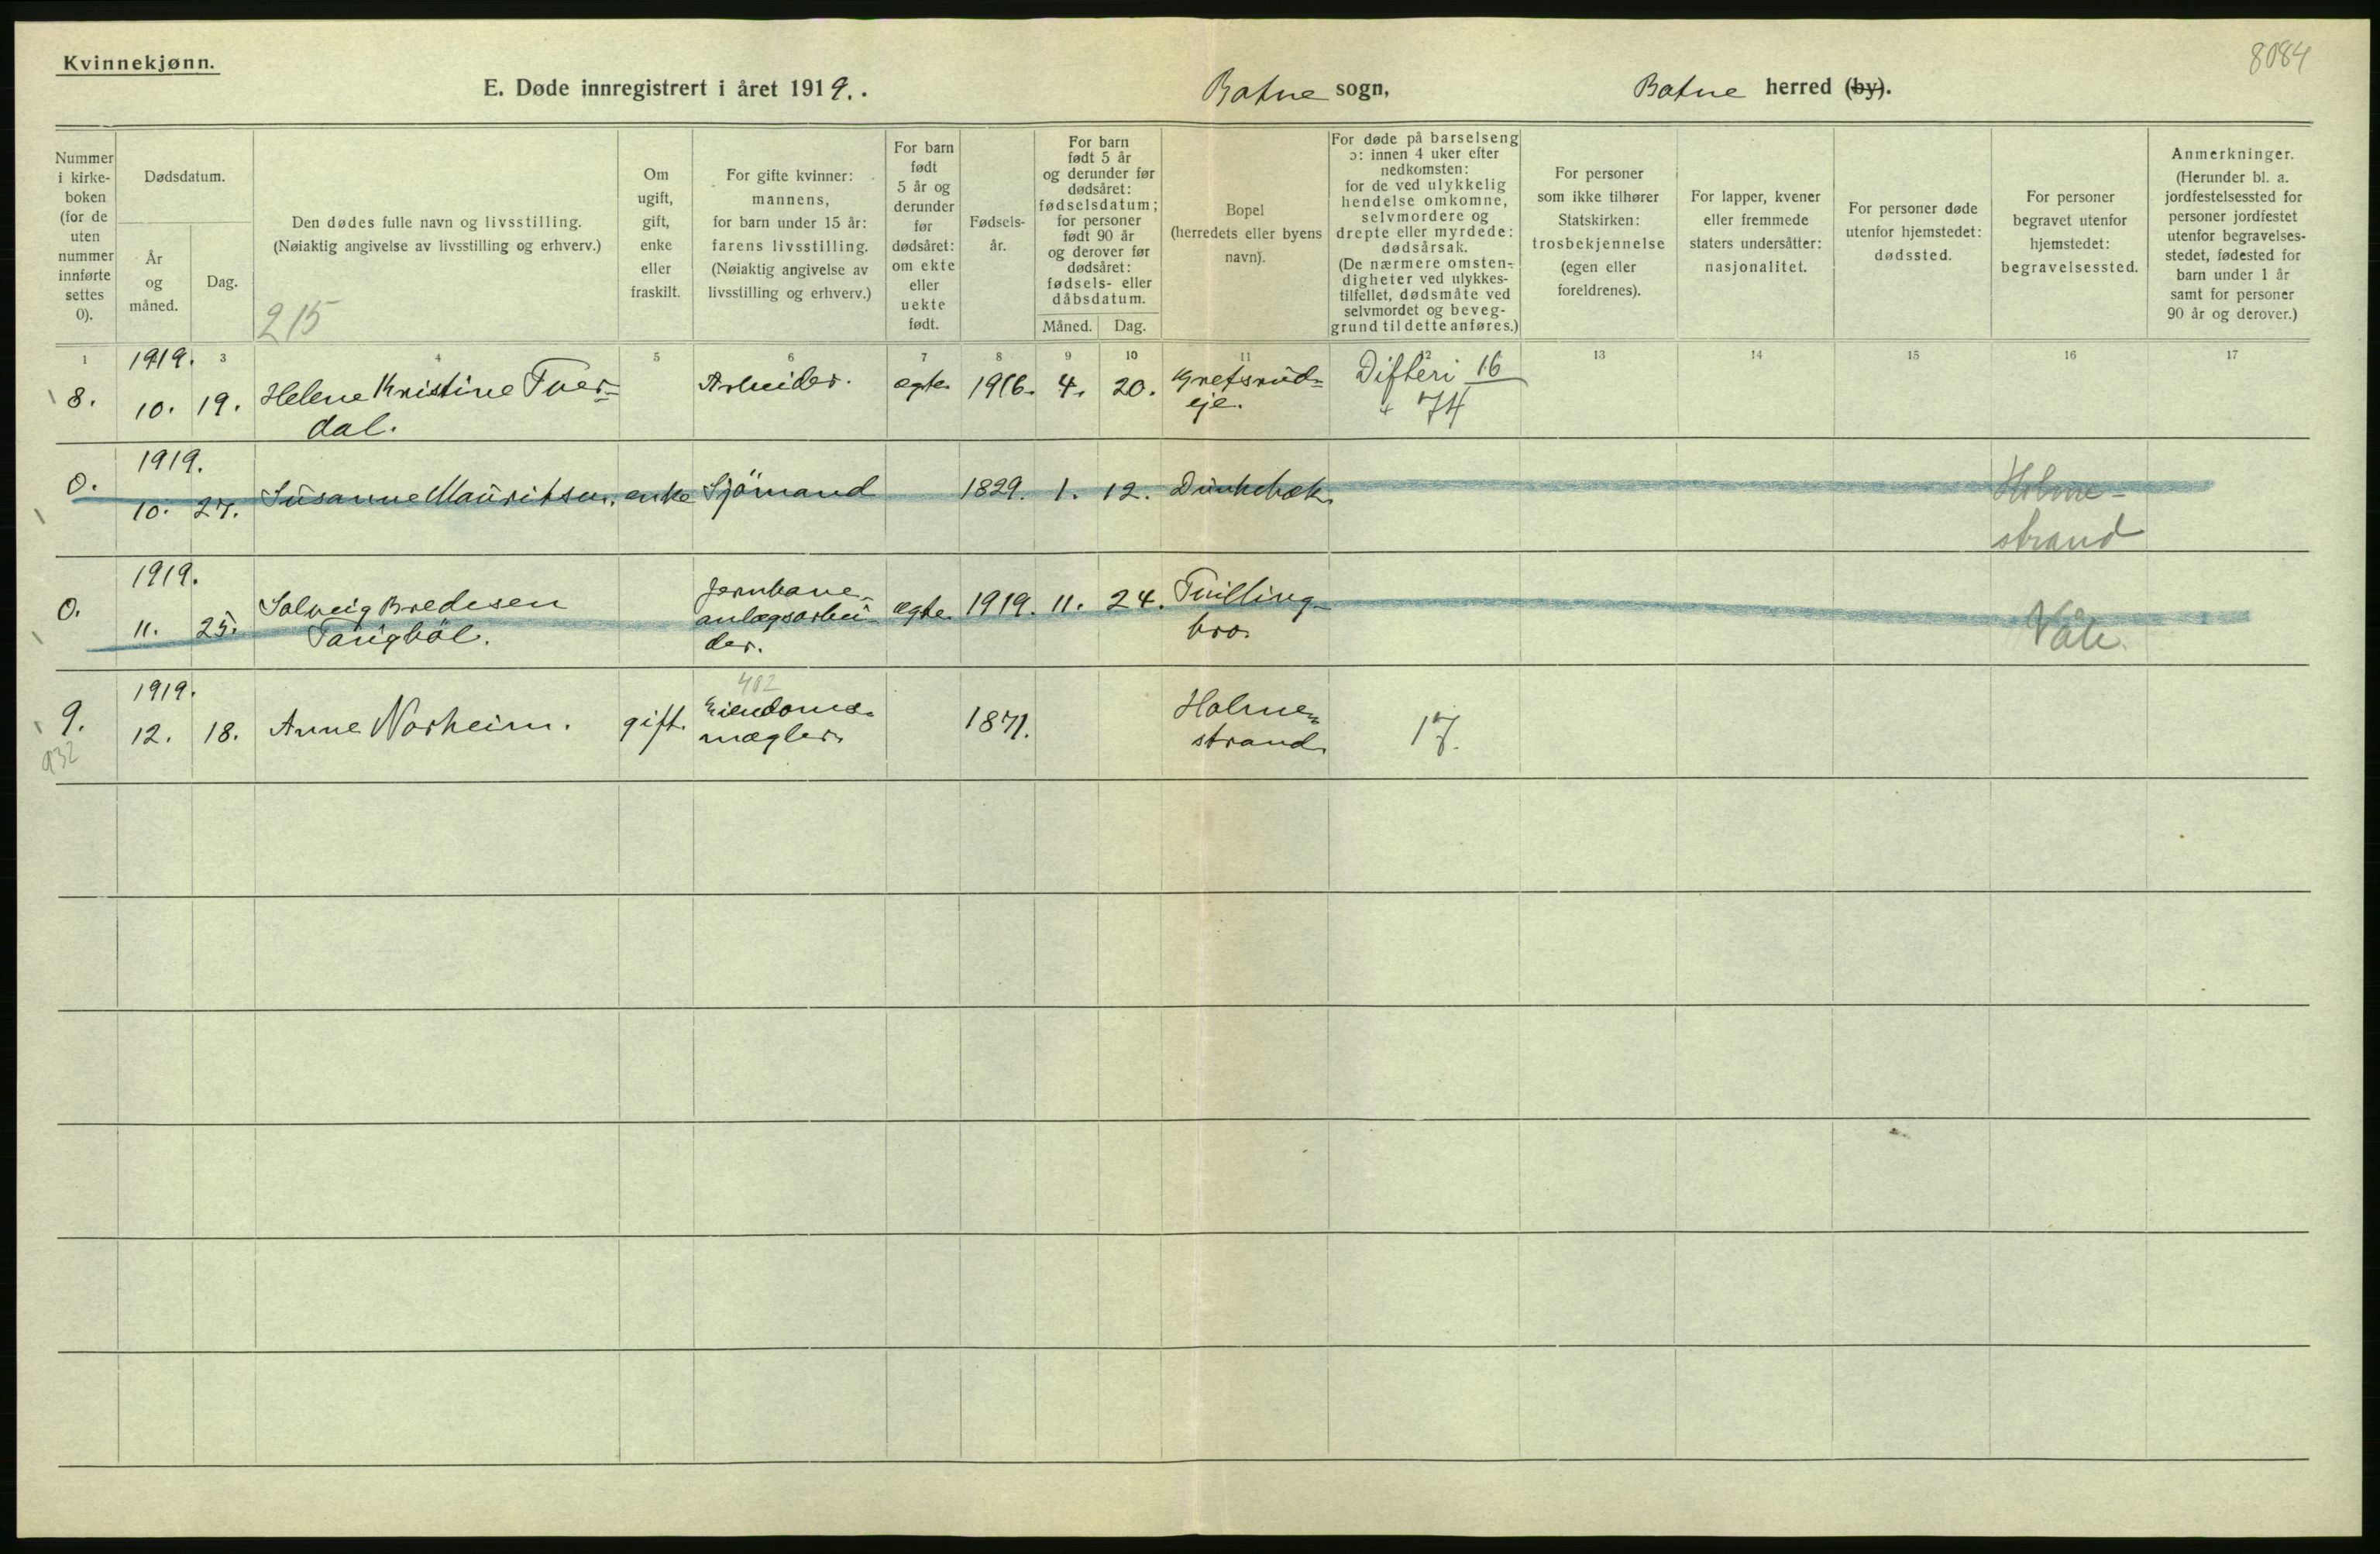 Kvinnekjønn.
8084
E. Døde innregistrert i året 1919. . Botne sogn, Botne herred (by).
Nummer
i kirke-
boken
(for de
uten
nummer
innførte
settes
0).
Dødsdatum.
År
og
måned.
Dag.
Den dødes fulle navn og livsstilling.
(Nøiaktig angivelse av livsstilling og erhverv.)
215
Om
ugift,
gift,
enke
eller
fraskilt.
For gifte kvinner:
mannens,
for barn under 15 år:
farens livsstilling.
(Nøiaktig angivelse av
livsstilling og erhverv.)
For barn
født
5 år og
derunder
før
dødsåret:
om ekte
eller
uekte
født.
Fødsels-
år.
For barn
født 5 år
og derunder før
dødsåret:
fødselsdatum;
for personer
født 90 år
og derover før
dødsåret:
fødsels- eller
dåbsdatum.
Måned. Dag.
Bopel
(herredets eller byens
navn).
For døde på barselseng
ɔ: innen 4 uker efter
nedkomsten:
for de ved ulykkelig
hendelse omkomne,
selvmordere og
drepte eller myrdede:
dødsårsak.
(De nærmere omsten-
digheter ved ulykkes-
tilfellet, dødsmåte ved
selvmordet og beveg-
grund til dette anføres.)
For personer
som ikke tilhører
Statskirken:
trosbekjennelse
(egen eller
foreldrenes).
For lapper, kvener
eller fremmede
staters undersåtter:
nasjonalitet.
For personer døde
utenfor hjemstedet:
dødssted.
For personer
begravet utenfor
hjemstedet:
begravelsessted.
Anmerkninger.
(Herunder bl. a.
jordfestelsessted for
personer jordfestet
utenfor begravelses-
stedet, fødested for
barn under 1 år
samt for personer
90 år og derover.)
1 3 4 5 6 7 8 9 10 11 12 13 14 15 16 17
1919.
8. 10. 19. Helene Kristine Tver-
dal.
Arbeider. ægte. 1916. 4. 20. Gretsrud-
eje.
Difteri 16
74
1919.
0. 10. 27. Susanne Mauritsen. enke Sjömand 1829. 1. 12. Dunkebæk.
Holme-
strand
1919.
0. 11. 25. Solveig Bredesen
Taugböl.
Jernbane-
anlægsarbei-
der.
ægte. 1919. 11. 24. Tuilling-
bro.
Våle.
1919.
9. 12. 18. Anne Norheim. gift.
402
Eiendoms-
mægler.
1871. Holme-
strand.
17.
932